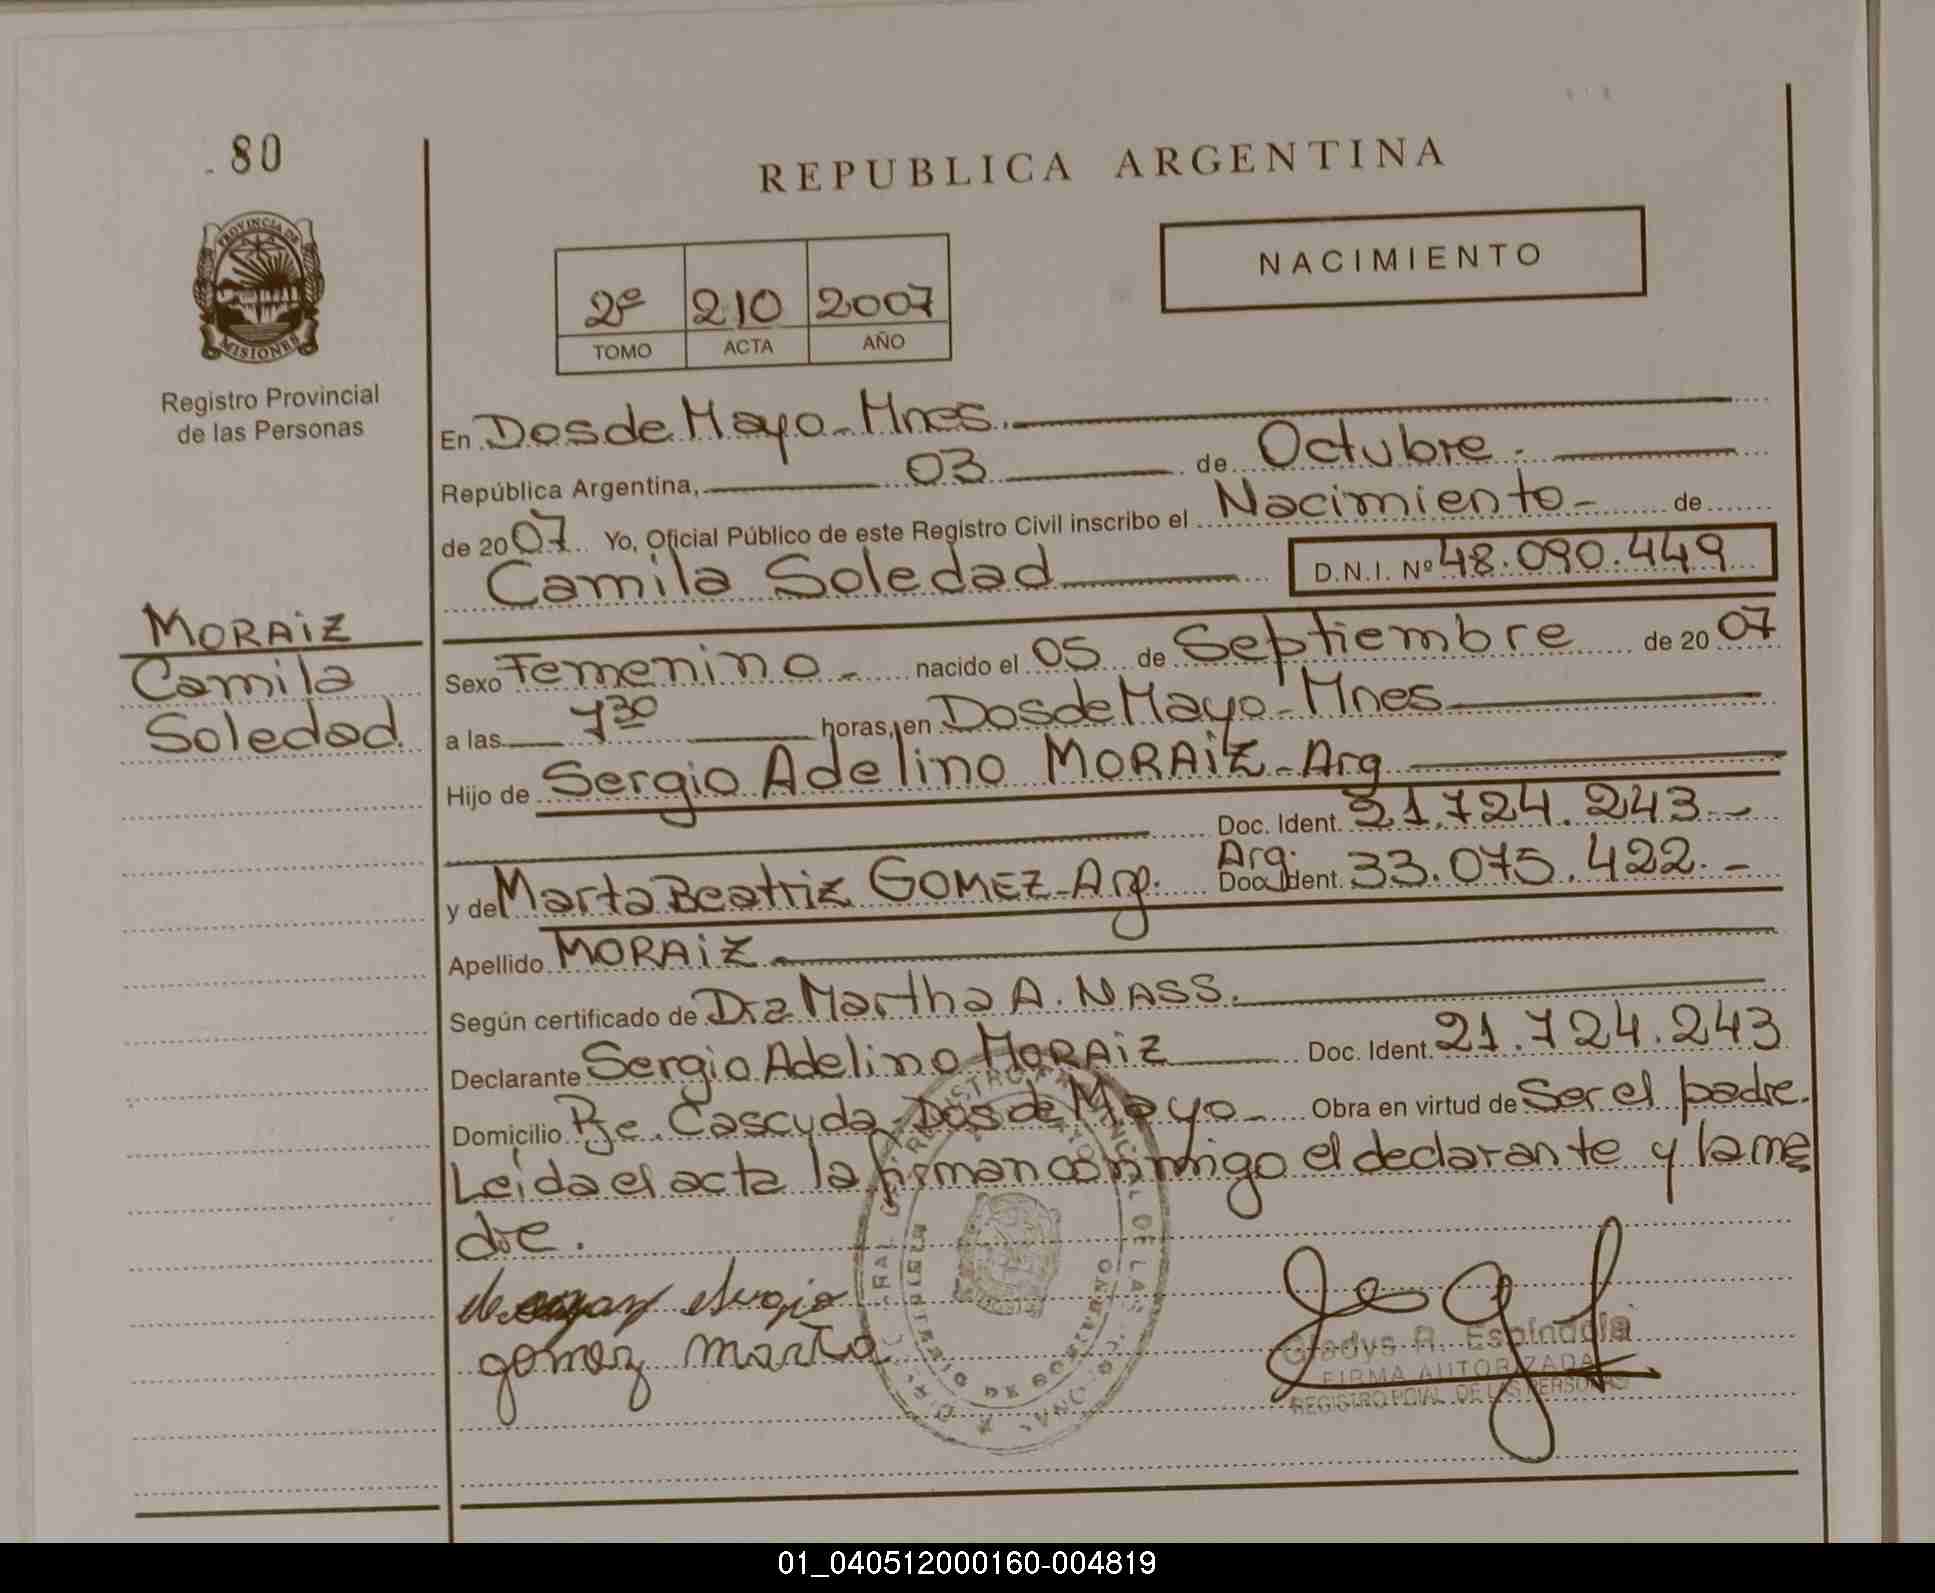 80
REPUBLICA ARGENTINA
PROVINCIA DE
MISIONES
Registro Provincial
de las Personas
NACIMIENTO
2º 210 2007
TOMO ACTA AÑO
En Dos de Mayo - Mnes.
República Argentina, 03 de Octubre.
de 2007. Yo, Oficial Público de este Registro Civil inscribo el Nacimiento - de
Camila Soledad D.N.I. Nº 48.090.449
MORAiZ
Camila
Soledad
Sexo Femenino - nacido el 05 de Septiembre de 2007
a las 7 30 horas, en Dos de Mayo - Mnes
Hijo de Sergio Adelino MORAiZ - Arg
Doc. Ident. 21.724.243 -
Arg.
y de Marta Beatriz GOMEZ - Arg. Doc. Ident. 33.075.422. -
Apellido MORAiZ
Según certificado de Dra Martha A. NASS.
Declarante Sergio Adelino MORAiZ Doc. Ident. 21.724.243
Domicilio Pje. Cascuda - Dos de Mayo - Obra en virtud de Ser el padre.
Leida el acta la firman conmigo el declarante y la ma
dre.
sergio
gomez marta
Gladys A. Espindola
FIRMA AUTORIZADA
REGISTRO PCIAL. DE LAS PERSONAS
01_040512000160-004819